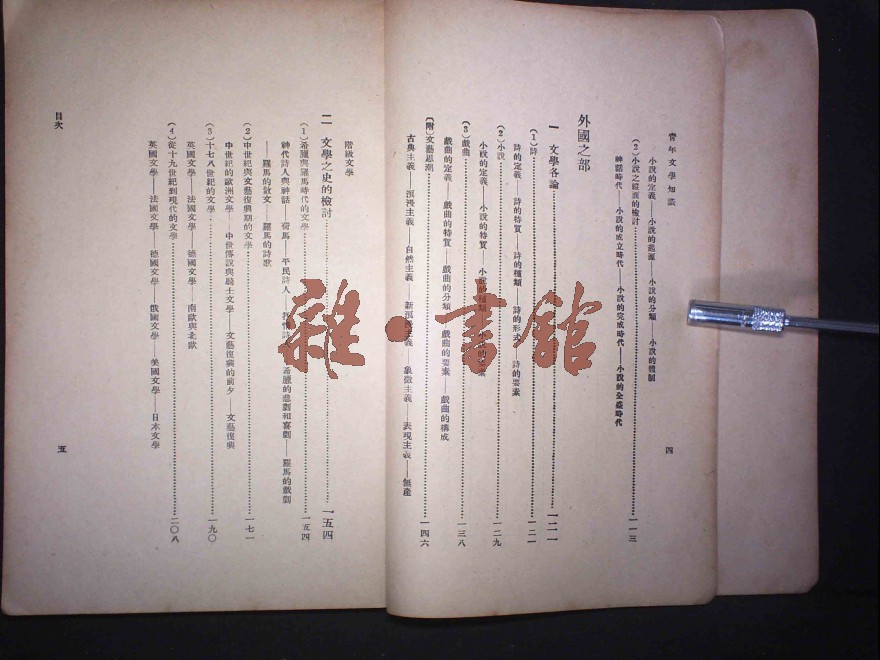 青年文學知識
小說的定義——小說的起源——小說的分類——小說的體制
(2)小說之縱面的檢討……一一三
神話時代——小說的成立時代——小說的完成時代——小說的全盛時代
外國之部
一 文學各論……一二一
(1)詩……一二一
詩的定義——詩的特質——詩的種類——詩的形式——詩的要素
(2)小說……一二九
小說的定義——小說的特質——小說的種類
(3)戲曲……一三八
戲曲的定義——戲曲的特質——戲曲的分類——戲曲的要素——戲曲的構成
(附)文藝思潮……一四六
古典主義——浪漫主義——自然主義——新浪漫主義——象徵主義——表現主義——無產
四
階級文學
二 文學之史的檢討……一五四
(1)希臘與羅馬時代的文學……一五四
神代詩人與神話——荷馬——平民詩人——抒情詩——希臘的悲劇和喜劇——羅馬的戲劇
——羅馬的散文——羅馬的詩歌
(2)中世紀與文藝復興期的文學……一七一
中世紀的歐洲文學——中世傳說與騎士文學——文藝復興的前夕——文藝復興
(3)十七八世紀的文學……一九〇
英國文學——法國文學——德國文學——南歐與北歐
(4)從十九世紀到現代的文學……二〇八
英國文學——法國文學——德國文學——俄國文學——美國文學——日本文學
目次
五
雜·書館